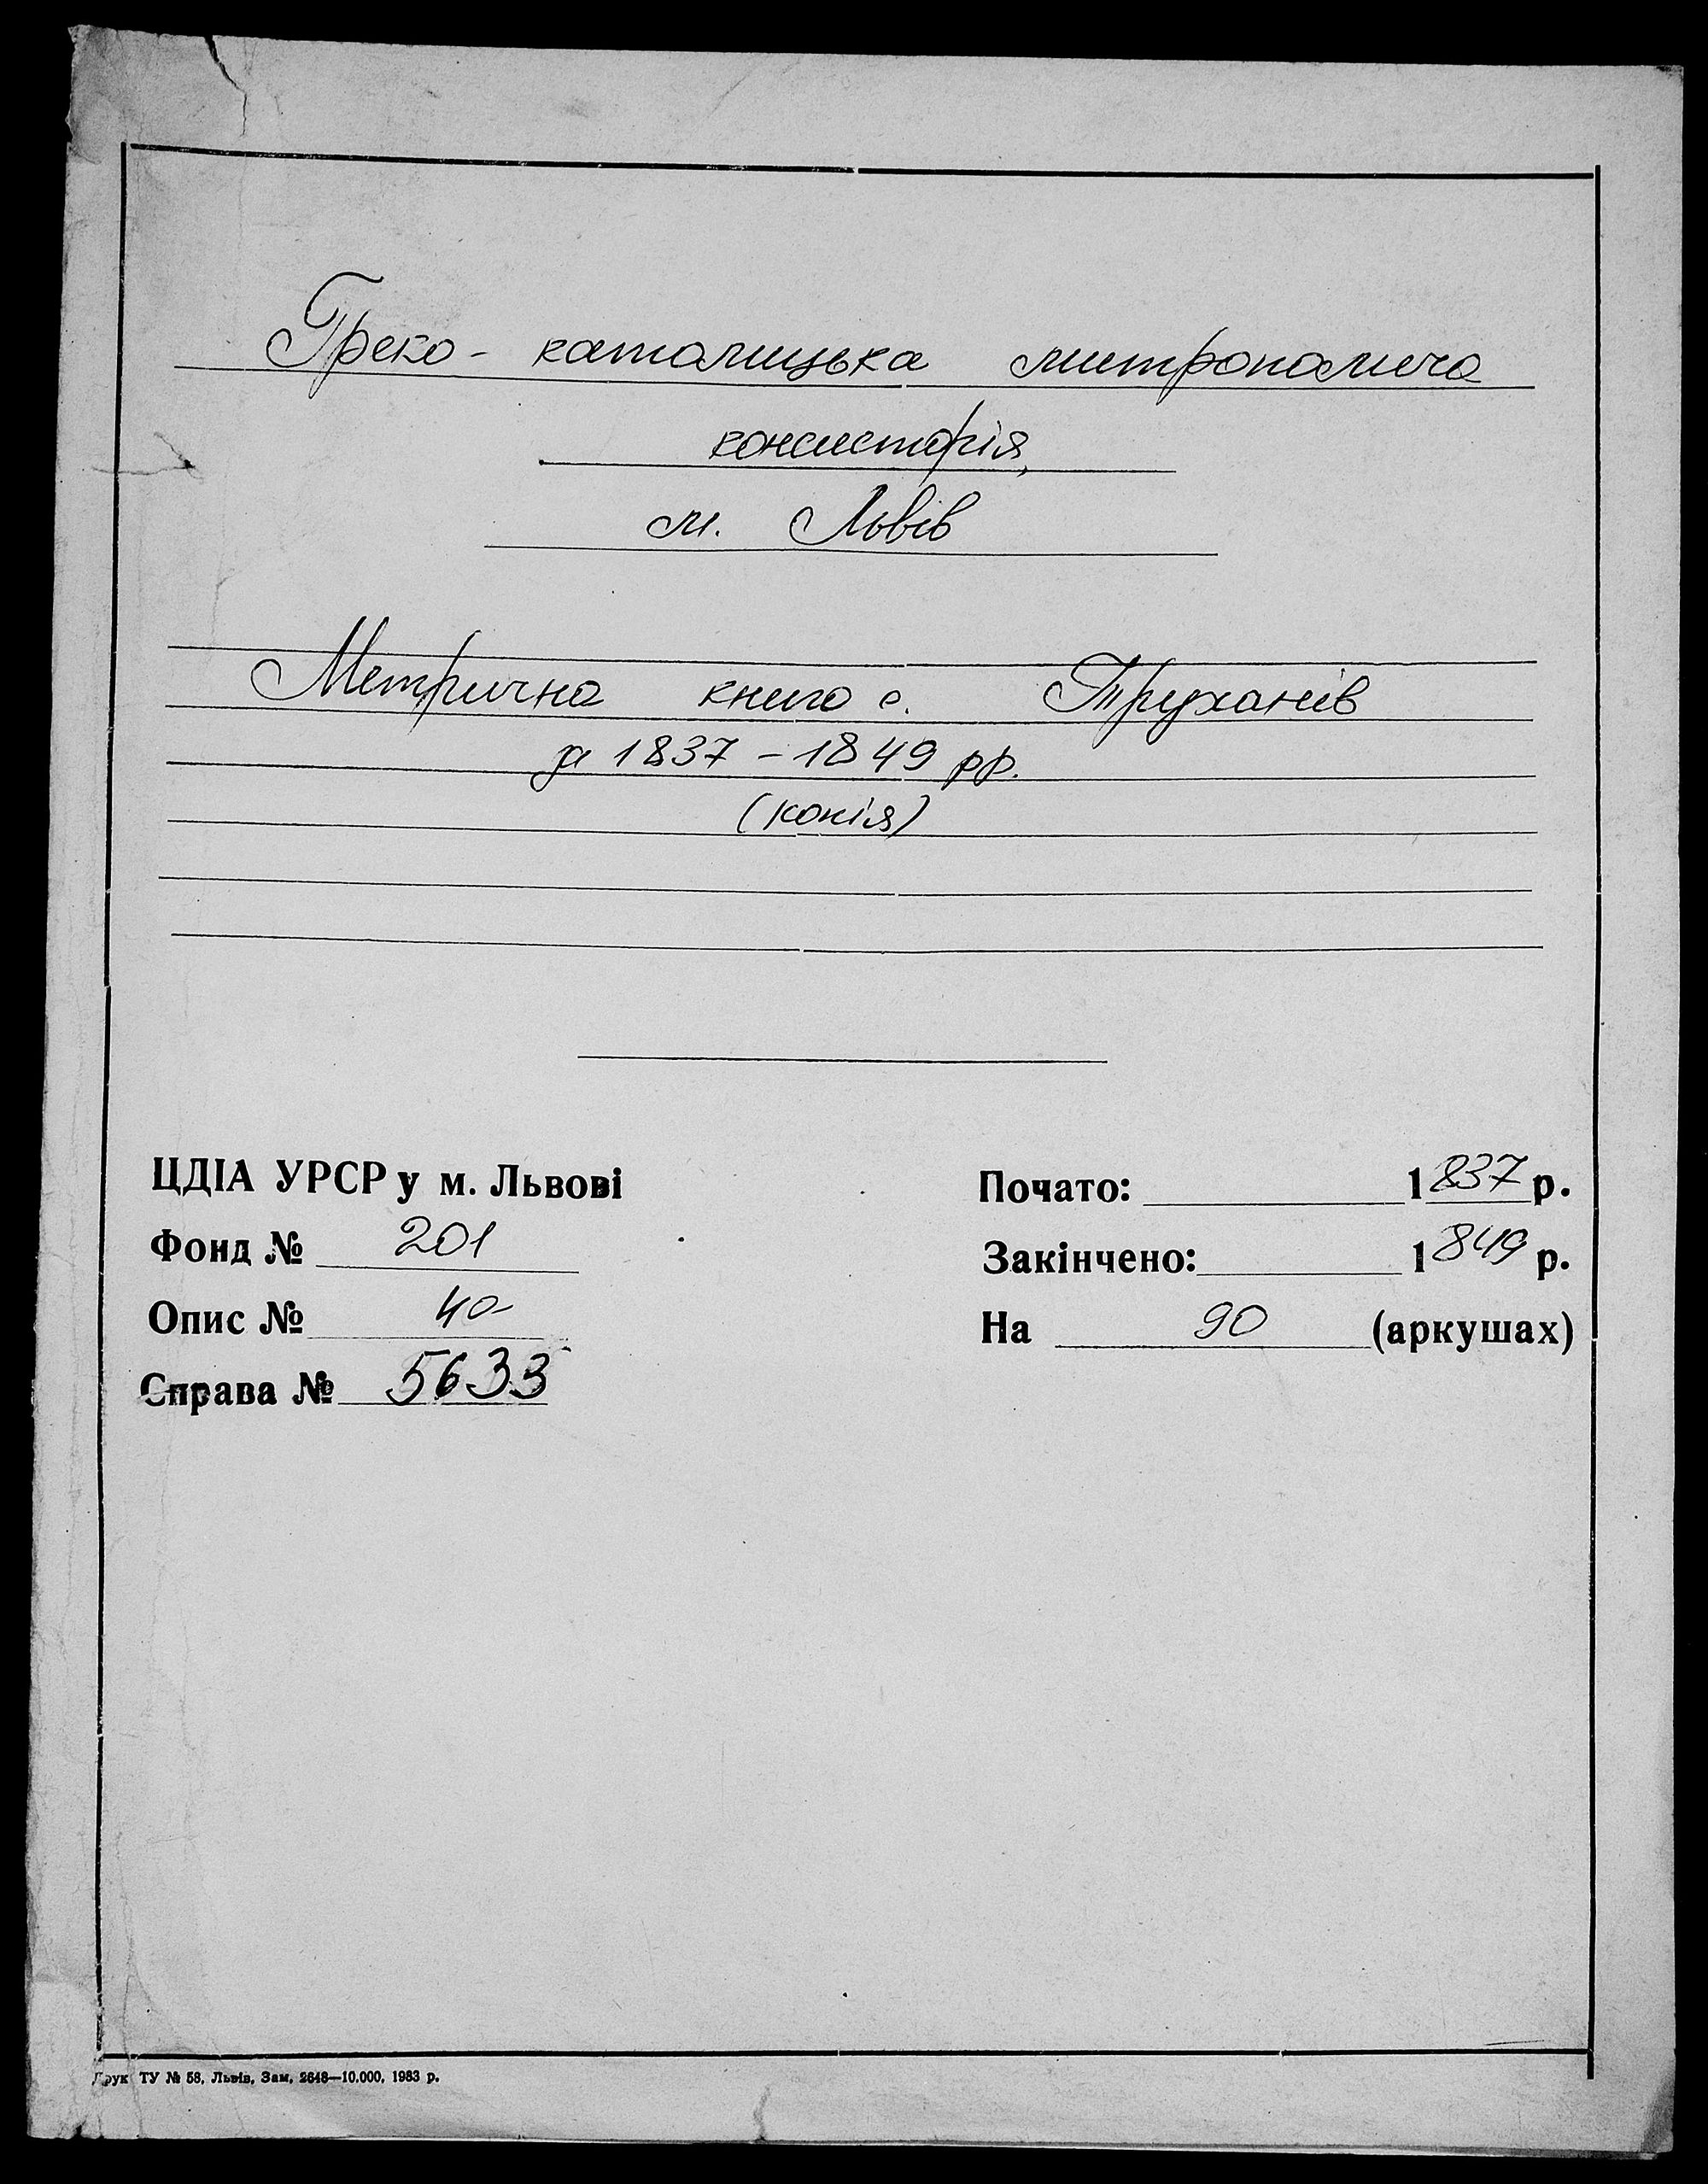 Греко-католицька митрополича
консисторія,
м. Львів
Метрична книга с. Труханів
за 1837-1849 рр.
(копія)
ЦДІА УРСР у м. Львові
Фонд № 201
Опис № 4а
Справа № 5633
Почато: 1837 р.
Закінчено: 1849 р.
На 90 (аркушах)
Друк ТУ № 58, Львів, Зам, 2648—10.000, 1983 р.